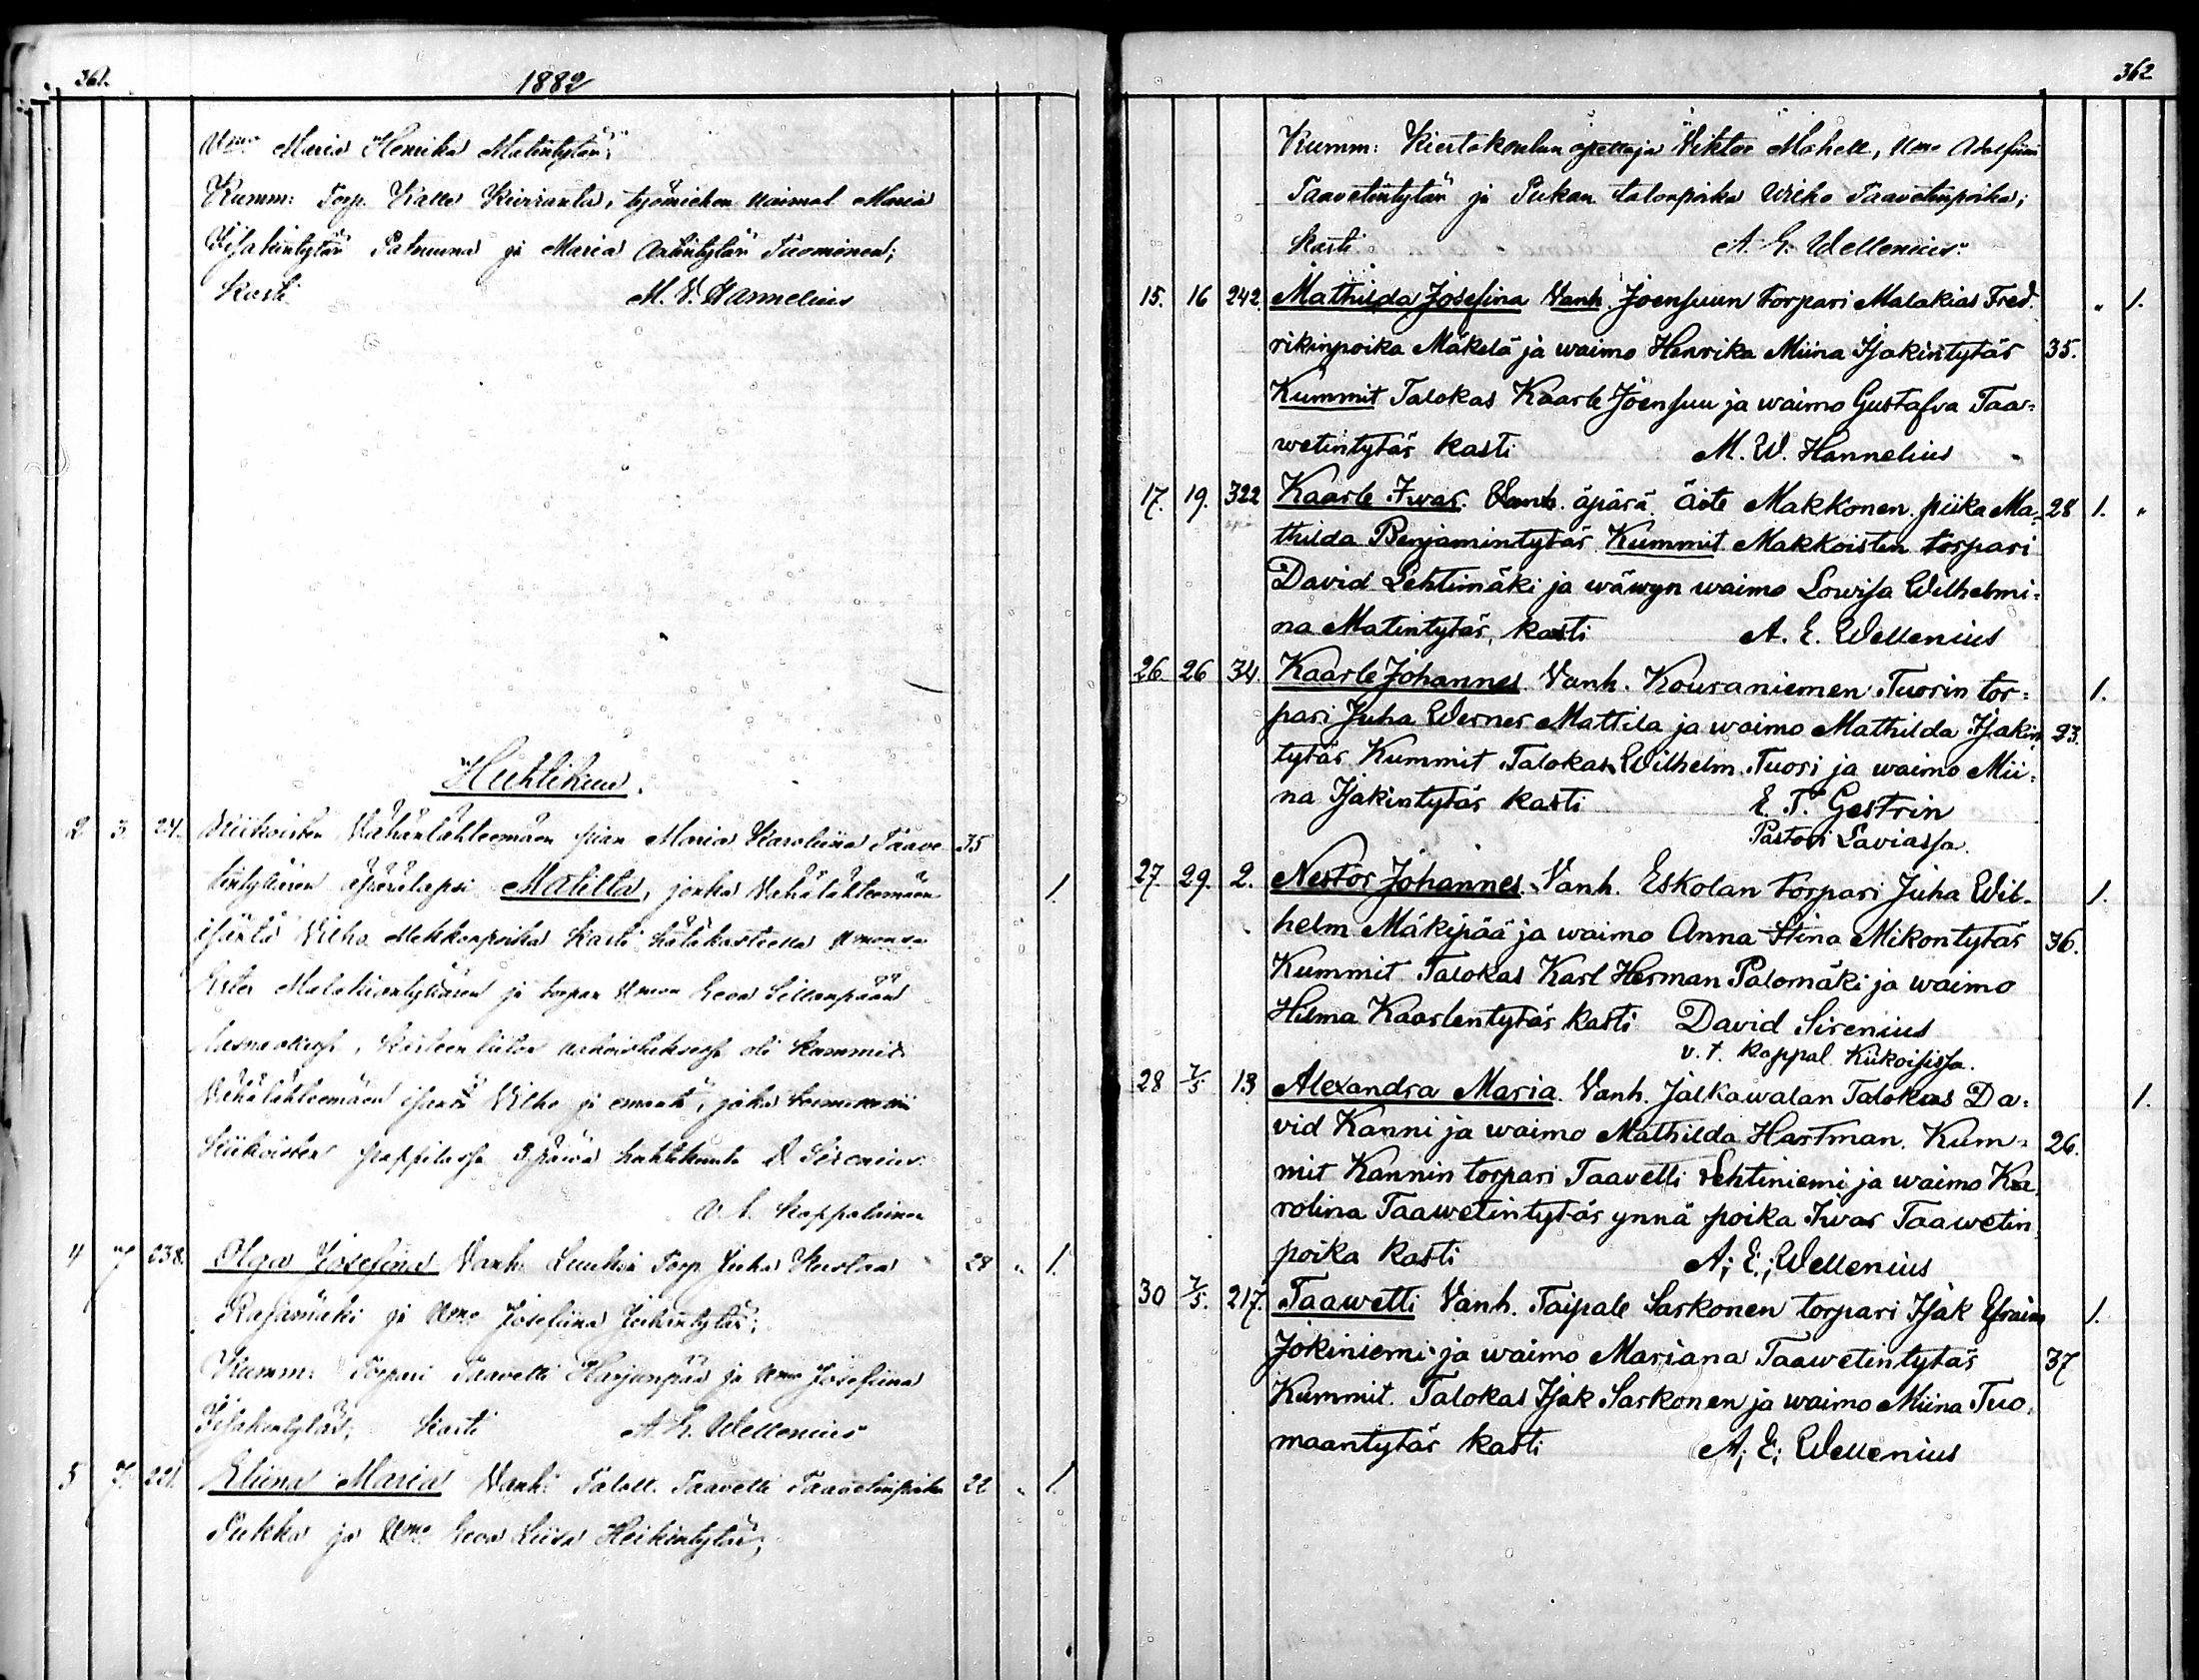 361.
1882
Wmo Maria Henrika Matintytär;
Kumm: Torp. Kalle Kiviranta, työmiehen vaimot Maria
Iisakintytär ja Maria Antintytär Tuominen;
Kasti M. V. Hannelius
Huhtikuu.
2 3. 24. Kiikoisten Vähänlähteenmäen piian Maria Karoliina Taave- 35
tintyttären äpärälapsi Matilta, jonka Vähälähteenmäen 1.
isäntä Vilho kasti hätäkasteella
Ester ja torpan Eeva Sillanpään
läsnäollessa, oli kummit
Vähälähteenmäen isäntä Vilho ja emäntä, joka toimi
Kiikoisten pappilassa 3 päivä huhtikuuta D Sirenius
v. t. Kappalainen
4 7 238. Olga Josefina Vanh. Torp Juha Kustaa 28 „ 1.
Rajamäki ja Wmo Josefiina Juhantytär;
Kumm: Torpari Taavetti Harjunpää ja Wmo Josefiina
Iisakintytär; Kasti A. E. Wellenius
5 7. 221. Eliina Maria Vanh: Taloll. Taavetti Taavetinpoika 22 „ 1.
Pukka ja Wmo Eeva Liisa Heikintytär;
362
Kumm: Kiertokoulun opettaja Viktor Mahell, Wmo Adolfiina
Taavetintytär ja Pukan talonpoika Vilho Taavetinpoika;
Kasti A. E. Wellenius.
15. 16 242. Mathilda Josefina Vanh. Joensuun torpari Malakias Fred- „ 1.
rikinpoika Mäkelä ja waimo Henrika Miina Isakintytär 35.
Kummit Talokas Kaarle Joensuu ja waimo Gustafva Taa-
wetintytär kasti M. W. Hannelius
17. 19. 322 Kaarle Iwar. Vanh. äpärä. äite Makkonen piika Ma- 28 1. „
thilda Benjamintytär Kummit Makkoisten torpari
David Lehtimäki ja wäwyn waimo Lowisa Wilhelmi-
na Matintytär, kasti A. E. Wellenius
26. 26 34. Kaarle Johannes. Vanh. Kouraniemen Tuorin tor- 1.
pari Juha Werner Mattila ja waimo Mathilda Isakin 23.
tytär Kummit Talokas Wilhelm Tuori ja waimo Mii-
na Isakintytär kasti E. T. Gestrin
Pastori Laviassa.
27. 29. 2. Nestor Johannes. Vanh. Eskolan torpari Juha Wil- 1.
helm Mäkipää ja waimo Anna Stina Mikontytär 36.
Kummit Talokas Karl Herman Palomäki ja waimo
Hilma Kaarlentytär kasti David Sirenius
v. t. kappal Kiikoisissa.
28 7/5 13 Alexandra Maria. Vanh. Jalkawalan Talokas Da- 1.
vid Kanni ja waimo Mathilda Hartman. Kum- 26.
mit Kannin torpari Taavetti Lehtiniemi ja waimo Ka
rolina Taawetintytär ynnä poika Iwar Taawetin
poika kasti A; E; Wellenius
30 7/5. 217. Taawetti Vanh. Taipale Sarkonen torpari Isak Efraim 1.
Jokiniemi ja waimo Mariana Taawetintytär 37
Kummit. Talokas Isak Sarkonen ja waimo Miina Tuo-
maantytär kasti A; E; Wellenius